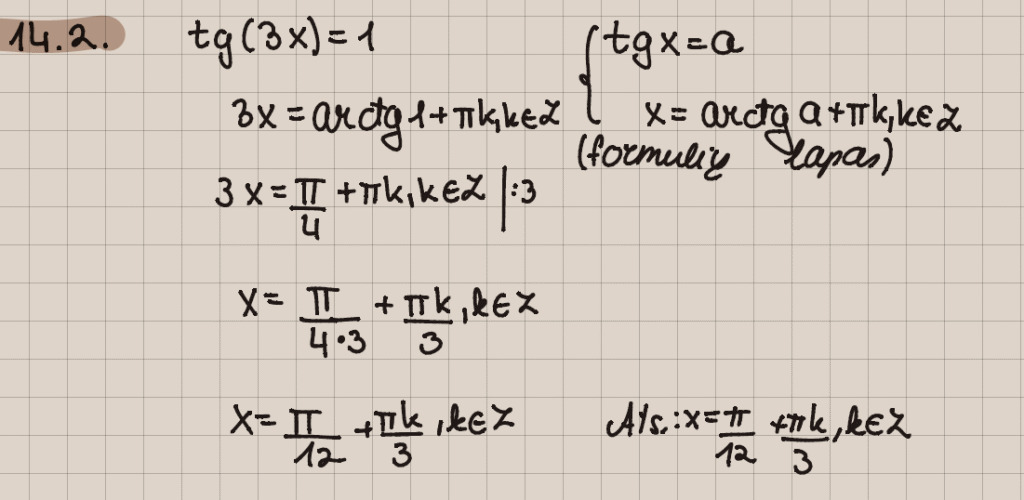 14.2. tg(3x)=1 { tgx=a
3x = arctg 1 + πk, k∈Z x = arctg a + πk, k∈Z
(formulių lapas)
3x = π/4 + πk, k∈Z |:3
x = π/(4·3) + πk/3, k∈Z
x = π/12 + πk/3, k∈Z Ats.: x = π/12 + πk/3, k∈Z